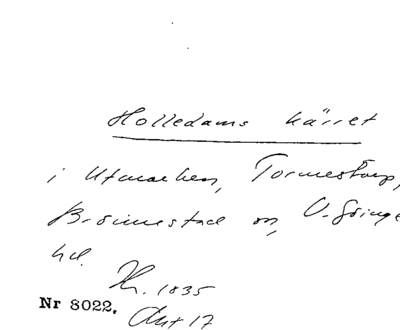 Holledams kärret
i Utmarken, Tormestorp,
Brönnestad sn, V. Göinge
hd.
Kr. 1835
Nr 8022. Akt 17